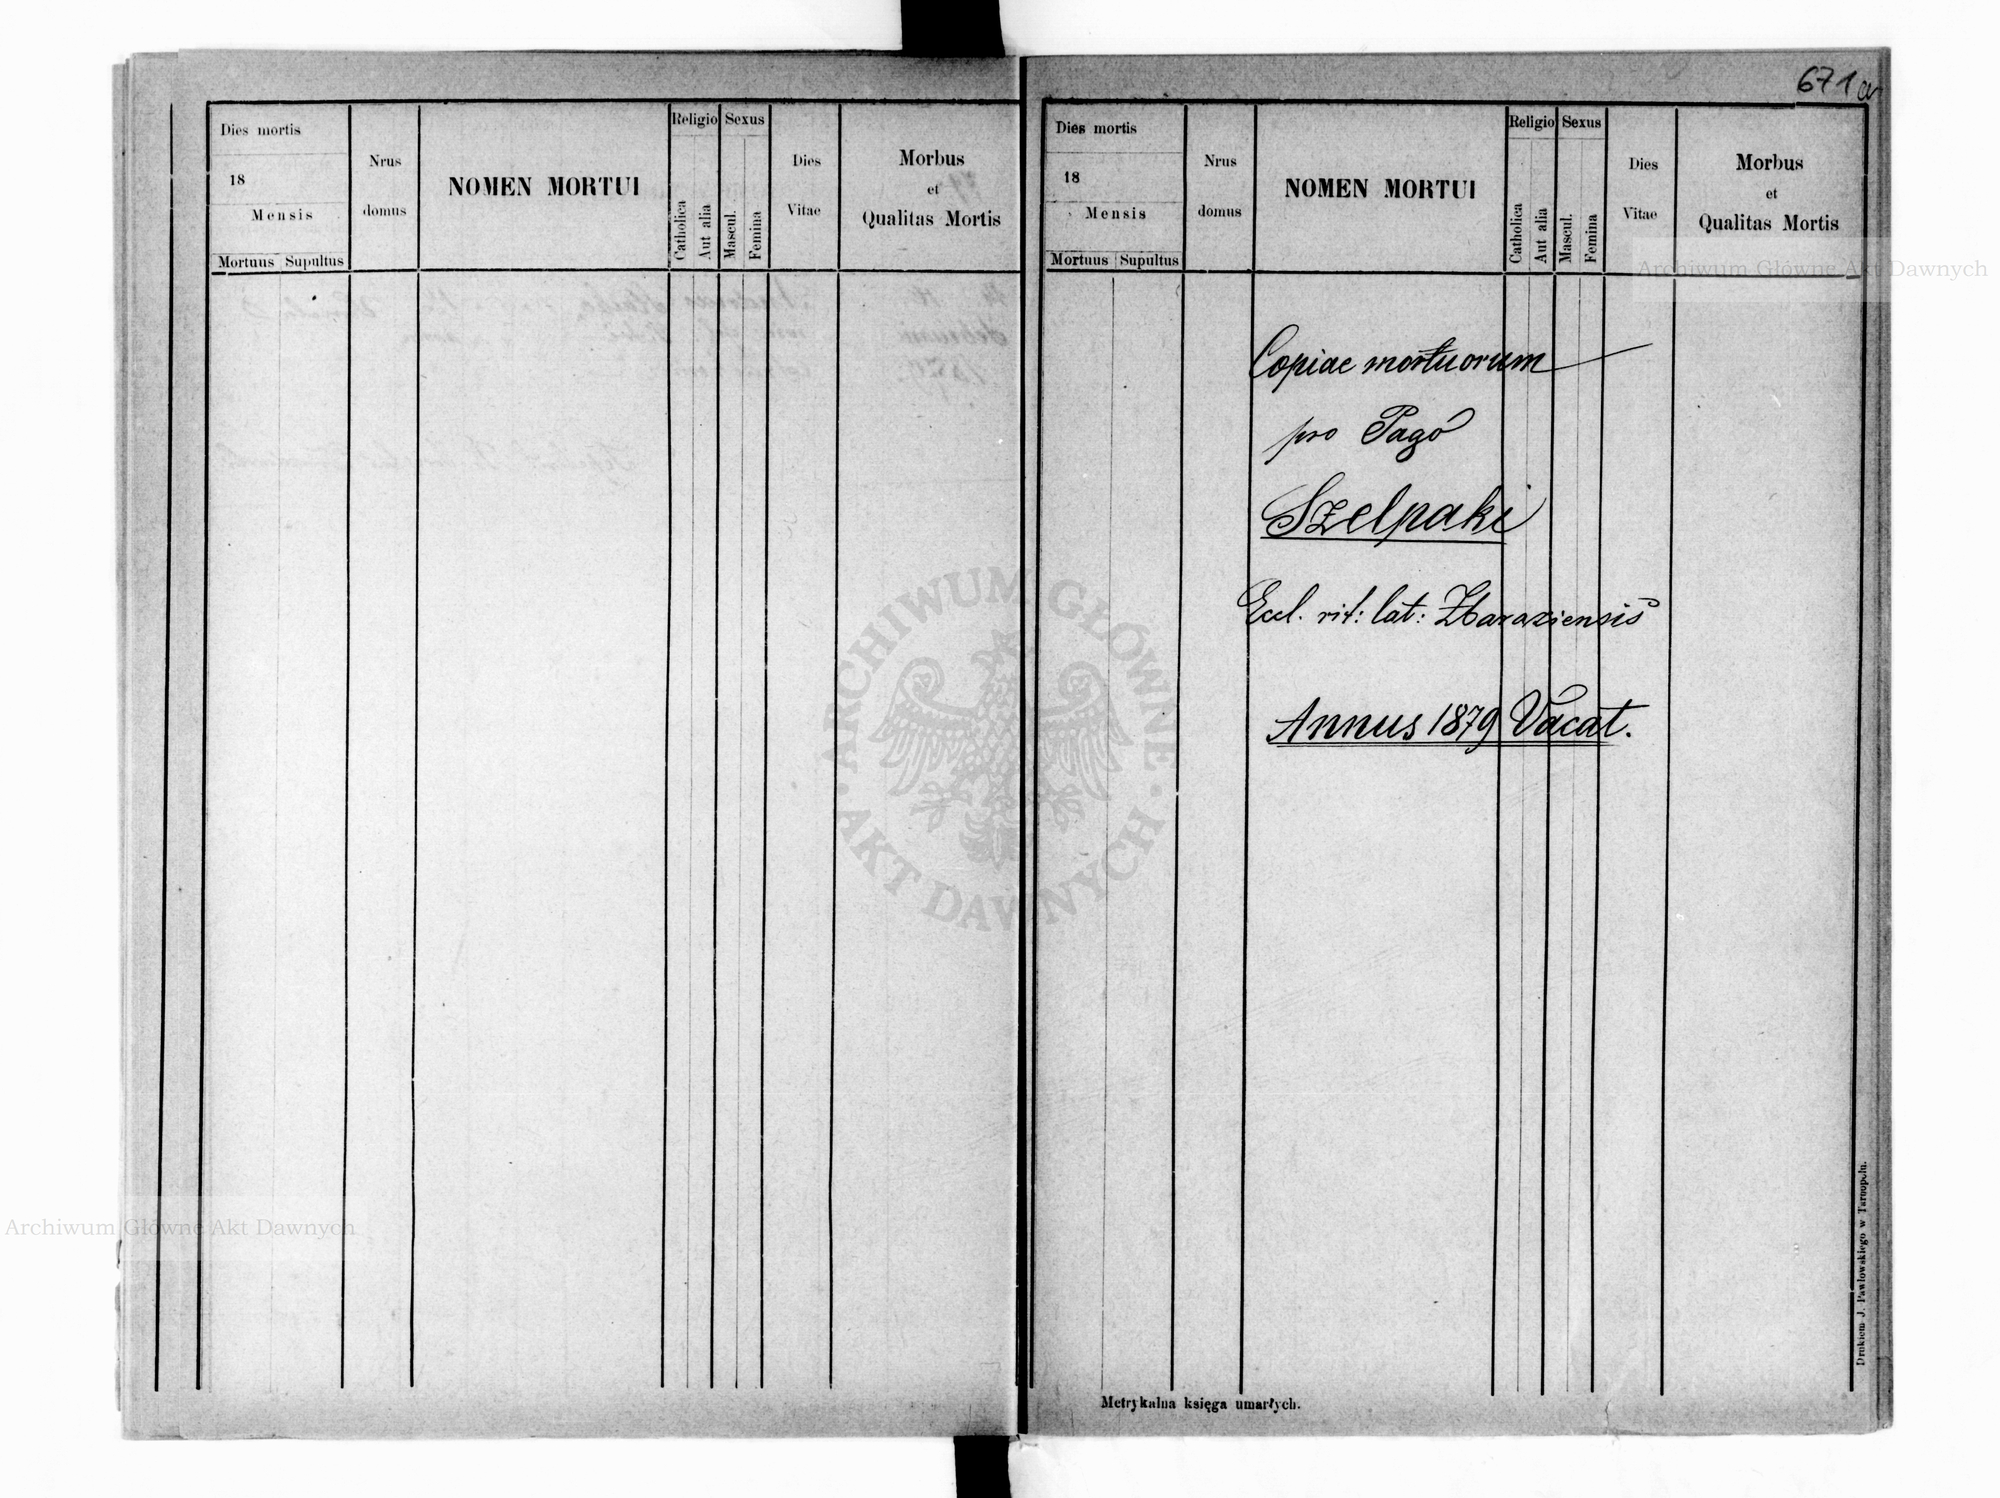 671 a
Dies mortis
18
Mensis
Mortuus Supultus
Nrus
domus
NOMEN MORTUI
Religio
Catholica
Aut alia
Sexus
Mascul.
Femina
Dies
Vitae
Morbus
et
Qualitas Mortis
Dies mortis
18
Mensis
Mortuus Supultus
Nrus
domus
NOMEN MORTUI
Religio
Catholica
Aut alia
Sexus
Mascul.
Femina
Dies
Vitae
Morbus
et
Qualitas Mortis
Archiwum Główne Akt Dawnych
Copiae mortuorum
pro Pago
Szelpaki
Eccl. rit: lat: Zbaraziensis
Annus 1879 Vacat.
ARCHIWUM GŁÓWNE
AKT DAWNYCH
Archiwum Główne Akt Dawnych
Drukiem J. Pawłowskiego w Tarnopolu.
Metrykalna księga umarłych.